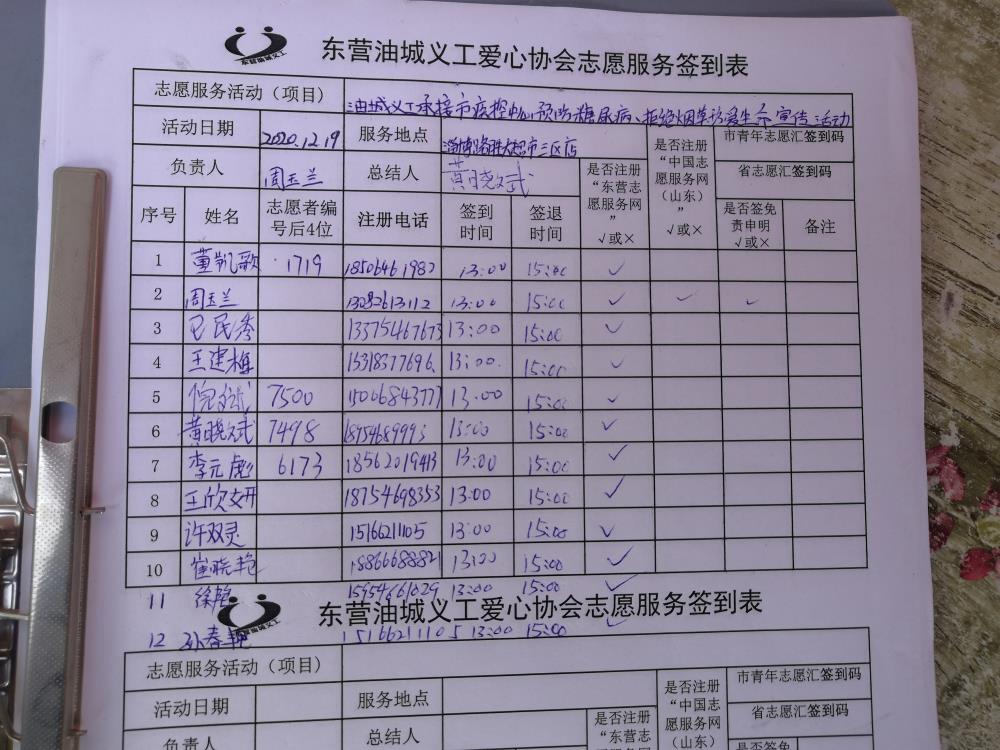 东营油城义工
东营油城义工爱心协会志愿服务签到表
志愿服务活动（项目） 油城义工承接市疾控中心预防糖尿病、拒绝烟草 宣传活动
活动日期 2020.12.19 服务地点 胜大超市三区店 是否注册“东营志愿服务网” √或× 是否注册“中国志愿服务网（山东）” √或× 市青年志愿汇签到码
负责人 周玉兰 总结人 黄晓斌 省志愿汇签到码
序号 姓名 志愿者编号后4位 注册电话 签到时间 签退时间 是否签免责申明 √或× 备注
1 董凯歌 1719 18506461987 13:00 15:00 ✓
2 周玉兰 13282613112 13:00 15:00 ✓ ✓ ✓
3 民秀 13375467673 13:00 15:00 ✓
4 王建梅 15318377696 13:00 15:00 ✓
5 倪文斌 7500 15066843777 13:00 15:00 ✓
6 黄晓斌 7498 18954689993 13:00 15:00 ✓
7 李元彪 6173 18562019413 13:00 15:00 ✓
8 王欣妍 18754698353 13:00 15:00 ✓
9 许双灵 15166211105 13:00 15:00 ✓
10 崔晓艳 18866688821 13:00 15:00 ✓
11 徐艳 15954661029 13:00 15:00 ✓
东营油城义工爱心协会志愿服务签到表
12 孙春艳 15166211105 13:00 15:00 ✓
志愿服务活动（项目）
活动日期 服务地点 是否注册“东营志愿服务网 是否注册“中国志愿服务网（山东） 市青年志愿汇签到码
负责人 总结人 省志愿汇签到码
是否签免